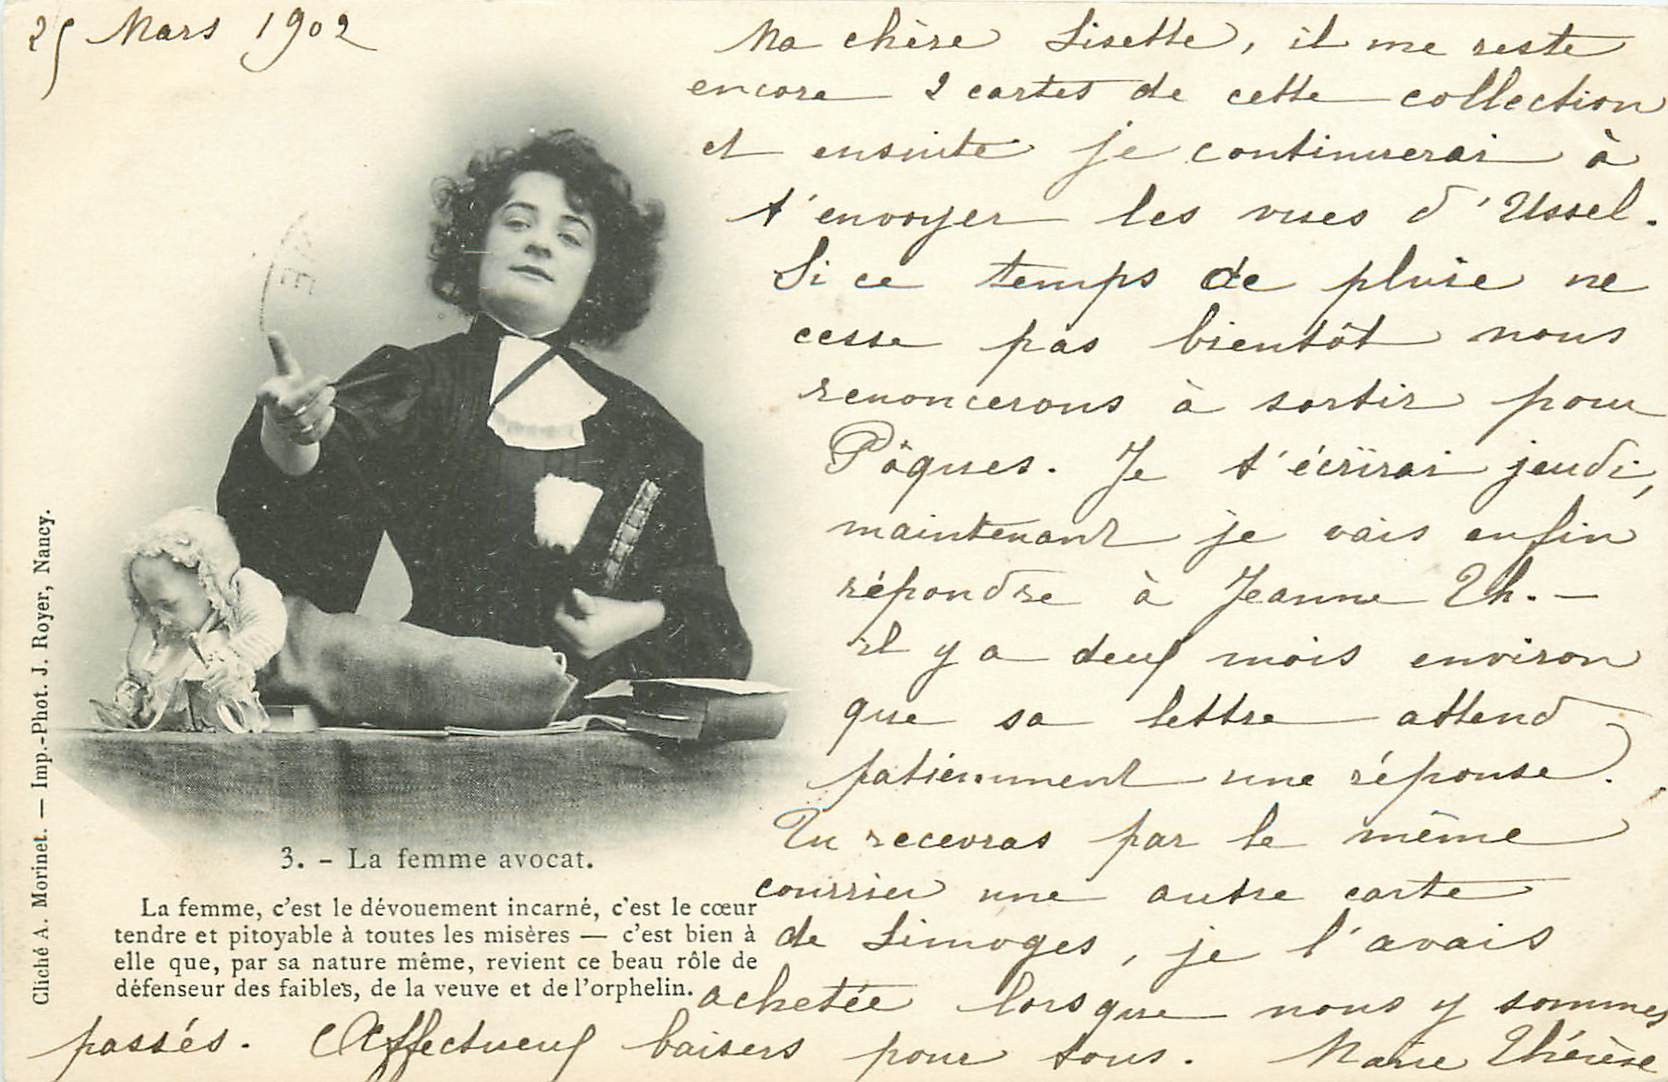 25 Mars 1902
Ma chère Lisette, il me reste
encore 2 cartes de cette collection
et ensuite je continuerai à
t'envoyer les vues d'Ussel.
Si ce temps de pluie ne
cesse pas bientôt nous
renoncerons à sortir pour
Pâques. Je t'écrirai jeudi,
maintenant je vais enfin
répondre à Jeanne Th. —
il y a deux mois environ
que sa lettre attend
patiemment une réponse.
Tu recevras par le même
courrier une autre carte
de Limoges, je l'avais
achetée lorsque nous y sommes
passés. Affectueux baisers pour tous. Marie Thérèse
3. - La femme avocat.
La femme, c'est le dévouement incarné, c'est le cœur
tendre et pitoyable à toutes les misères — c'est bien à
elle que, par sa nature même, revient ce beau rôle de
défenseur des faibles, de la veuve et de l'orphelin.
Cliché A. Morinet. — Imp.-Phot. J. Royer, Nancy.